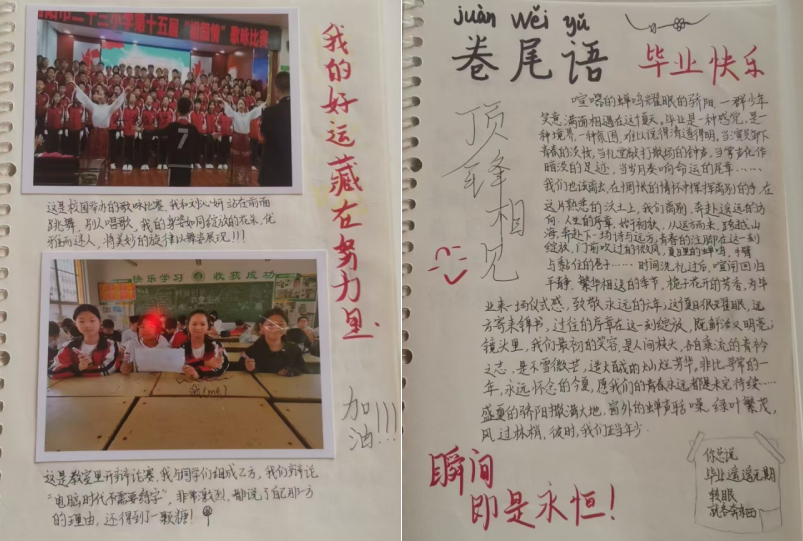 二十三小学第十五届“祖国情”歌咏比赛
7
这是校园举办的歌咏比赛,我和刘心妍站在前面
跳舞,别人唱歌,我的身姿如同绽放的花朵,优
雅而迷人,将美妙的旋律以舞姿展现!!!
我的好运藏在努力里
快乐学习
收获成功
我(me)
加油!!!
这是教室里开辩论赛,我与同学们组成乙方,我们辩论
“电脑时代不需要练字”,非常激烈,都说了自己那一方
的理由,还得到了一颗糖!
juàn wěi yǔ
卷尾语
毕业快乐
顶锋相见
喧唱的蝉鸣耀眼的骄阳,一群少年
笑意满面相遇在这夏天,毕业是一种感觉,是一
种境界,一种氛围,难以说得清道得明,当演员卸下
青春的沃妆,当礼堂敲打散场的钟声,当青春化作
暗淡的足迹,当岁月奏响命运的尾章……
我们也该离去,在惆怅的情怀中挥挥离别的手,在
这片熟悉的沃土上,我们离别,奔赴遥远的方
向,人生的序章,始于初秋,从远方而来,跨越山
海,奔赴下一场诗与远方,青春的注脚在这一刻
绽放,门前吹过的微风,夏日里的蝉鸣,手臂
与黏住的卷子……时间洗忆过后,喧闹回归
平静,繁华相送的季节,栀子花开的芳香,为毕
业来一场仪式感,致敬永远的六年,这夏日很耀眼,远
方寄来锦书,过往的序章在这一刻绽放,既鲜活又明亮,
镜头里,我们最初的笑容,是人间枝头,各自乘流的青衿
之志,是不雪微芒,造炬成阳的灿烂芳华,非比寻常的一
年,永远怀念的今夏,愿我们的青春永远都是未完待续……
盛夏的骄阳撒满大地,窗外的蝉声聒噪,绿叶繁茂,
风过林梢,彼时,我们正当年少.
瞬间
即是永恒!
你总说
毕业遥遥无期
转眼
就各奔东西